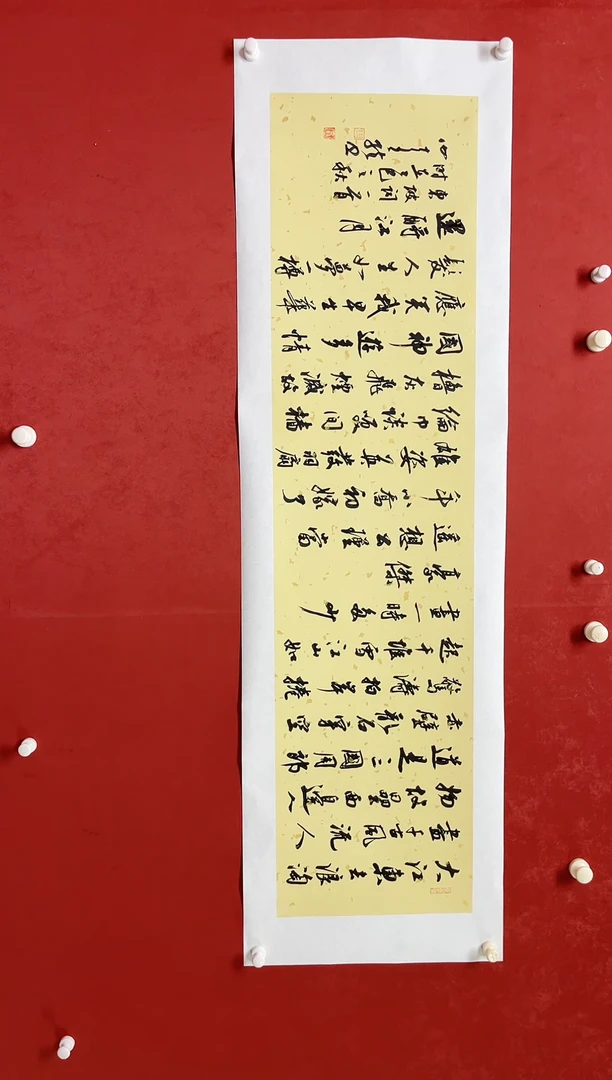 大江東去浪淘
盡千古風流人
物故壘西邊人
道是三國周郎
赤壁亂石穿空
驚濤拍岸捲
起千堆雪江山如
畫一時多少
豪傑
遙想公瑾當
年小喬初嫁了
雄姿英發羽扇
綸巾談笑間檣
櫓灰飛煙滅故
國神遊多情
應笑我早生華
髮人生如夢一樽
還酹江月
東坡詞一首
時在乙巳之秋